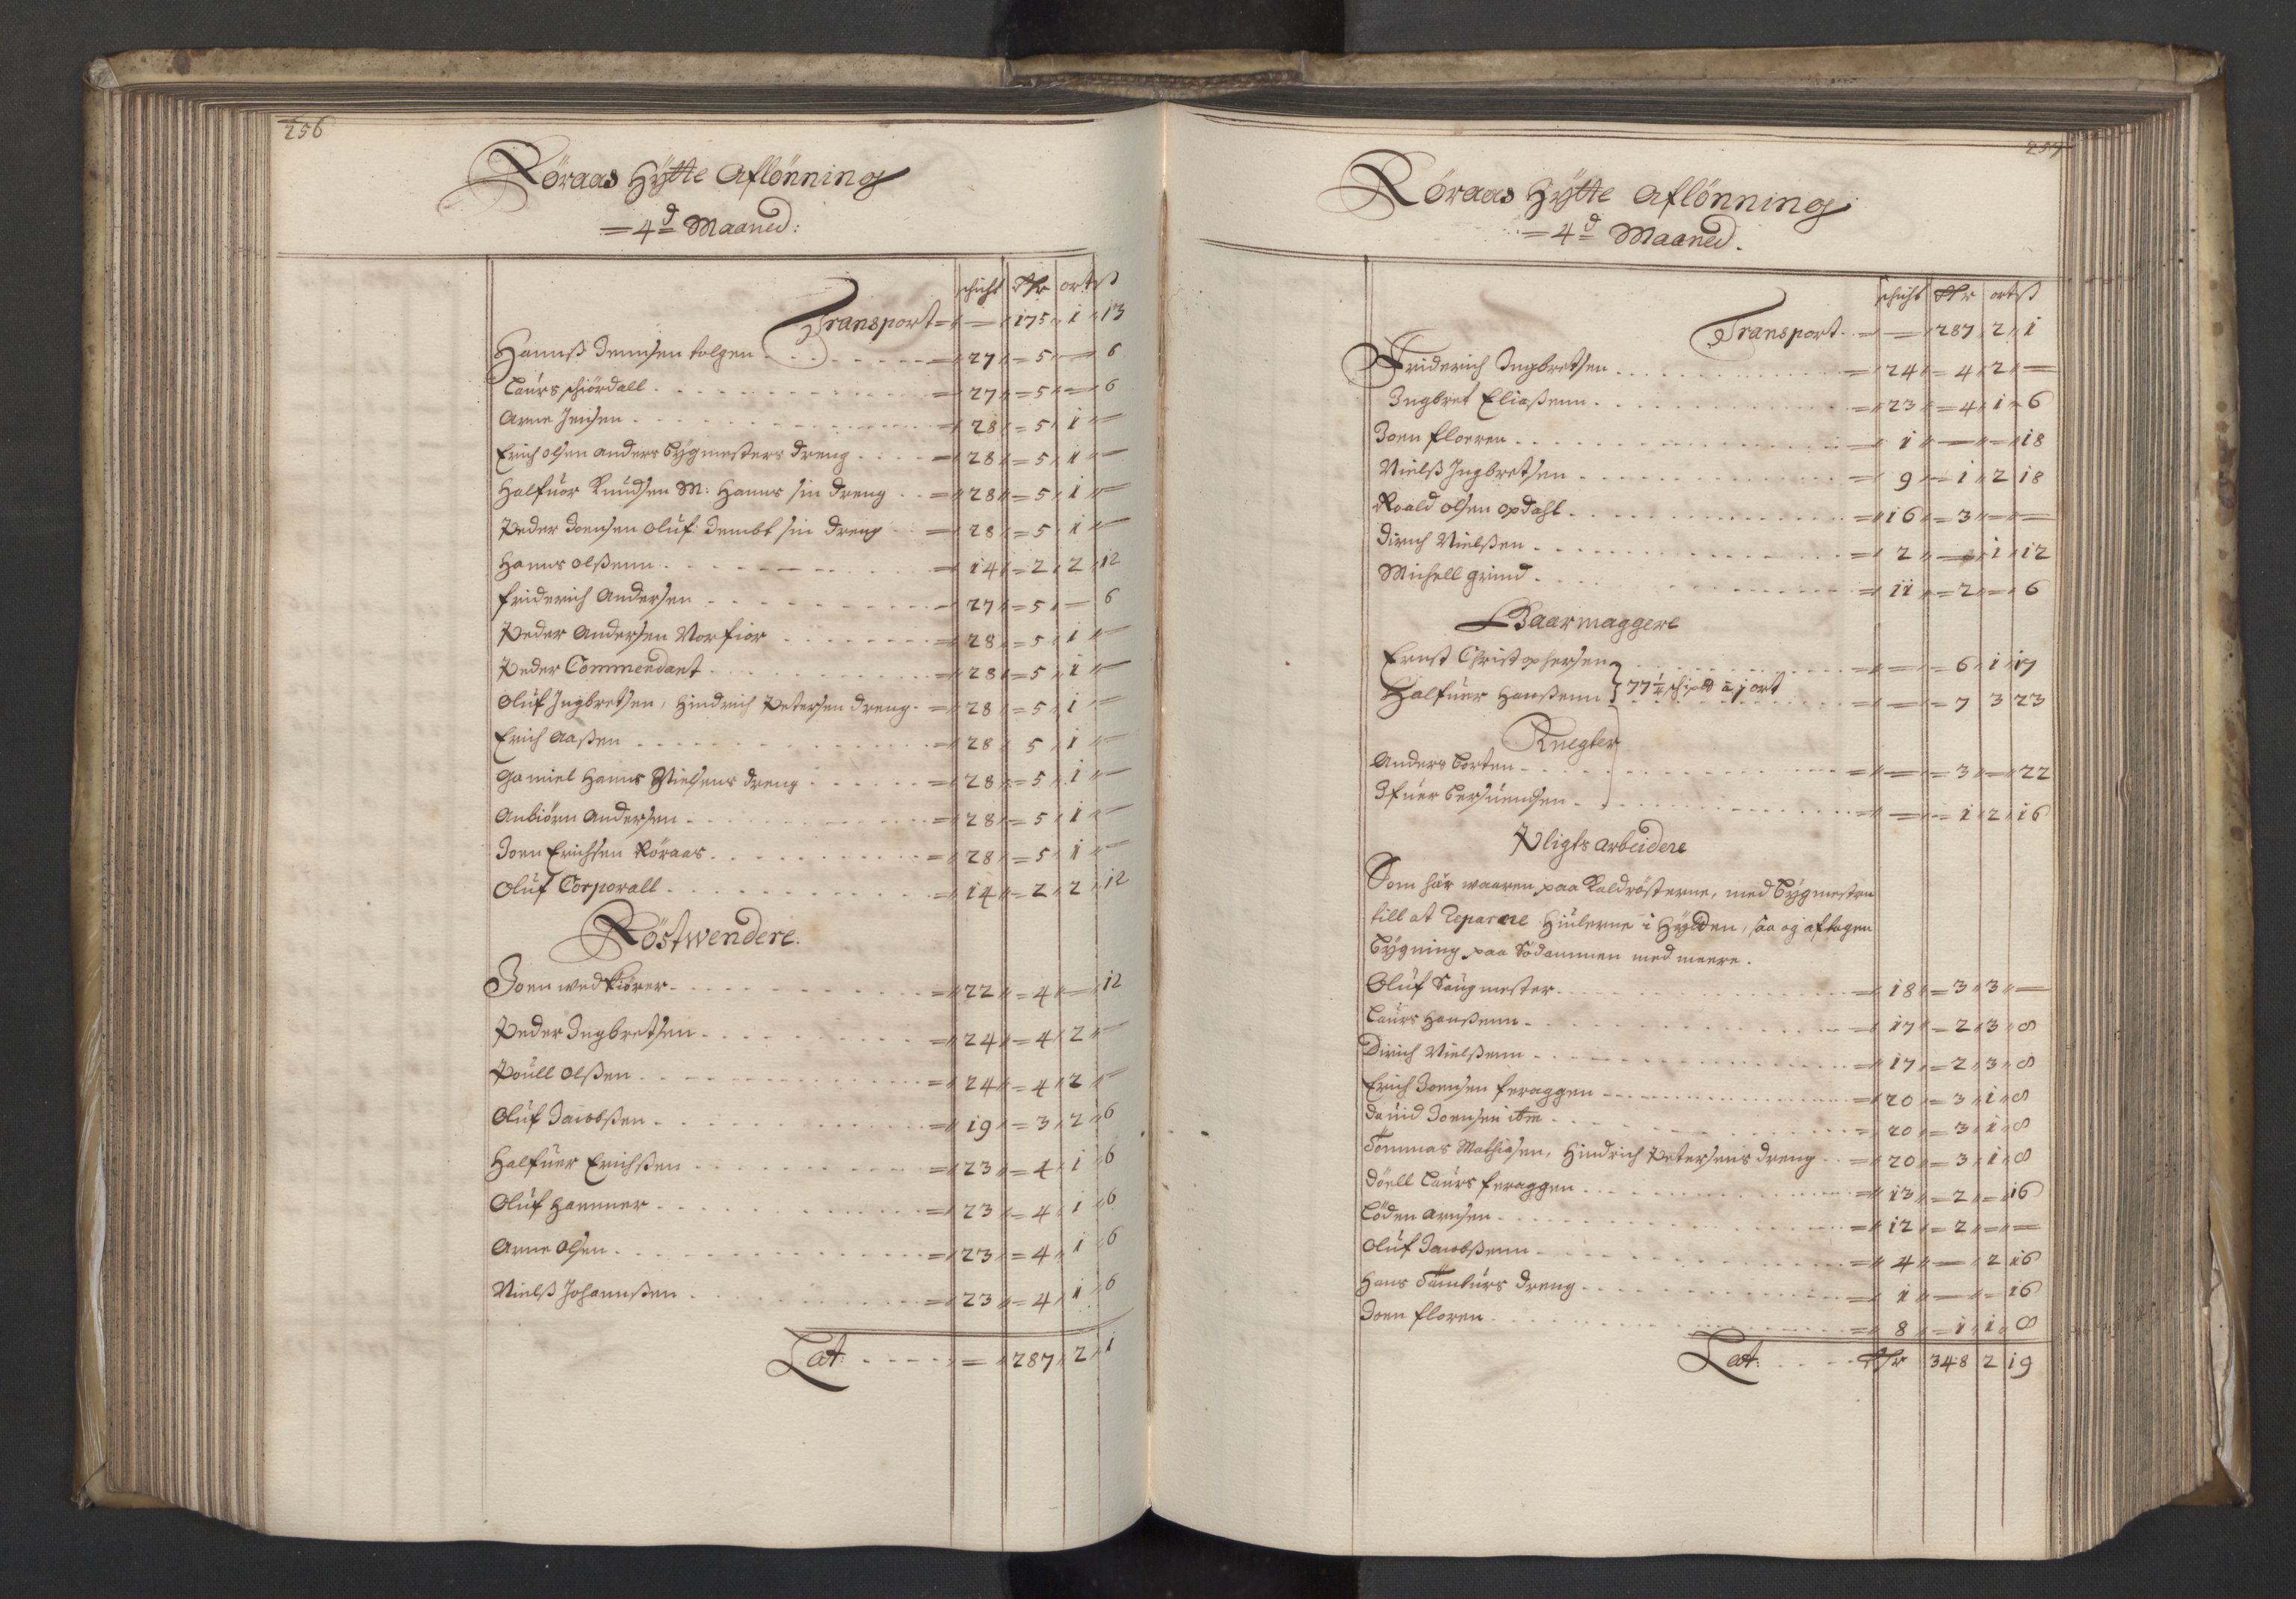 256
Röraas Hÿtte Aflönning
= 4d Maaned:
schicht Rdr ort ß
Transport = — 175 1 13
Hannß Jennsen tolgen = 27 = 5 — 6
Laurs schiördall = 27 = 5 — 6
Arne Jensen = 28 = 5 1 —
Erich olsen anders Bÿgmesters dreng = 28 = 5 1 —
Halfuor Knudsen M: Hanns sin dreng = 28 = 5 1 —
Peder Joensen oluf Dembt sin dreng = 28 = 5 1 —
Hanns olßenn = 14 = 2 2 12
friderich Andersen = 27 = 5 — 6
Peder Andersen Norfior = 28 = 5 1 —
Peder Commendant = 28 = 5 1 —
Oluf Ingbretsen, Hindrich Petersen dreng = 28 = 5 1 —
Erich Aaßen = 28 5 1 —
Gamiel Hanns Nielsens dreng = 28 = 5 1 —
Anbiörn Andersen = 28 = 5 1 —
Joen Erichsen Röraas = 28 = 5 1 —
Oluf Corporall = 14 = 2 2 12
Röstwendere.
Joen wedkiörer = 22 = 4 — 12
Peder Ingbretsen = 24 = 4 2 —
Poull olßen = 24 = 4 2 —
Oluf Jacobßen = 19 = 3 2 6
Halfuer Erichßen = 23 = 4 1 6
Oluf Hammer = 23 = 4 1 6
Arne olsen = 23 = 4 1 6
Nielß Johannßen = 23 = 4 1 6
Lat: = 287 2 1
257
Röraas Hÿtte Aflönning
= 4d Maaned.
schicht Rdr ort ß
Transport = — 287 2 1
Friderich Ingbretsen = 24 = 4 2 —
Ingbret Eliaßenn = 23 = 4 1 6
Joen floeren = 1 — — 18
Nielß Ingbretsen = 9 = 1 2 18
Roald olsen opdahl = 16 = 3 — —
Dirich Nielßen = 2 — 1 12
Michell grind = 11 = 2 — 6
Gaarmaggere
Ernst Christophersen = — = 6 1 17
Halfuer Hanßenn } 77 1/4 schipd a j ort = — = 7 3 23
Knegter
Anders Corten = — = 3 — 22
Ifuer Bersuendsen = — = 1 2 16
Pligts arbeidere
Som här waaren paa Kaldrösterne, med Bÿgmesteren
till at Reparere Hiulerne i Hÿtten, saa og aftagen
Bÿgning paa Södammen med meere.
Oluf Saugmester = 18 = 3 3 —
Laurs Hanßenn = 17 = 2 3 8
Dirich Nielßenn = 17 = 2 3 8
Erich Joensen feraggen = 20 = 3 1 8
Dauid Joensen itm = 20 = 3 1 8
Tommas Mathiasen, Hindrich Petersens dreng = 20 = 3 1 8
Döell Laurs feraggen = 13 = 2 — 16
Löden Arnsen = 12 = 2 — —
Oluf Jacobßenn = 4 — 2 16
Hans Tamburs dreng = 1 — — 16
Joen floren = 8 = 1 1 8
Lat: Rdr 348 2 19